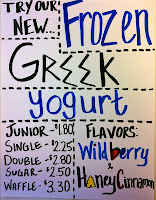 TRY OUR
NEW...
Frozen
GREEK
yogurt
JUNIOR-$1.80
SINGLE-$2.25
DOUBLE-$2.80
SUGAR-$2.50
WAFFLE-$3.30
FLAVORS:
Wildberry
&
Honey Cinnamon